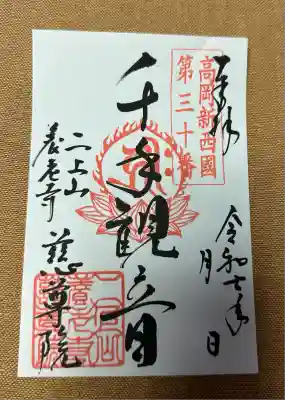 奉拝
令和七年
月 日
高岡新西國
第三十番
千手観音
二上山
養老寺 慈尊院